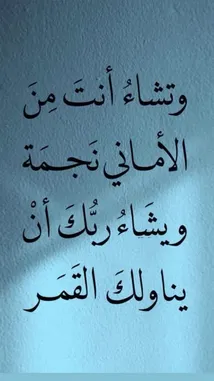 وتشاءُ أنتَ مِنَ
الأماني نَجمَة
ويشَاءُ ربُّكَ أنْ
يناولكَ القَمَر